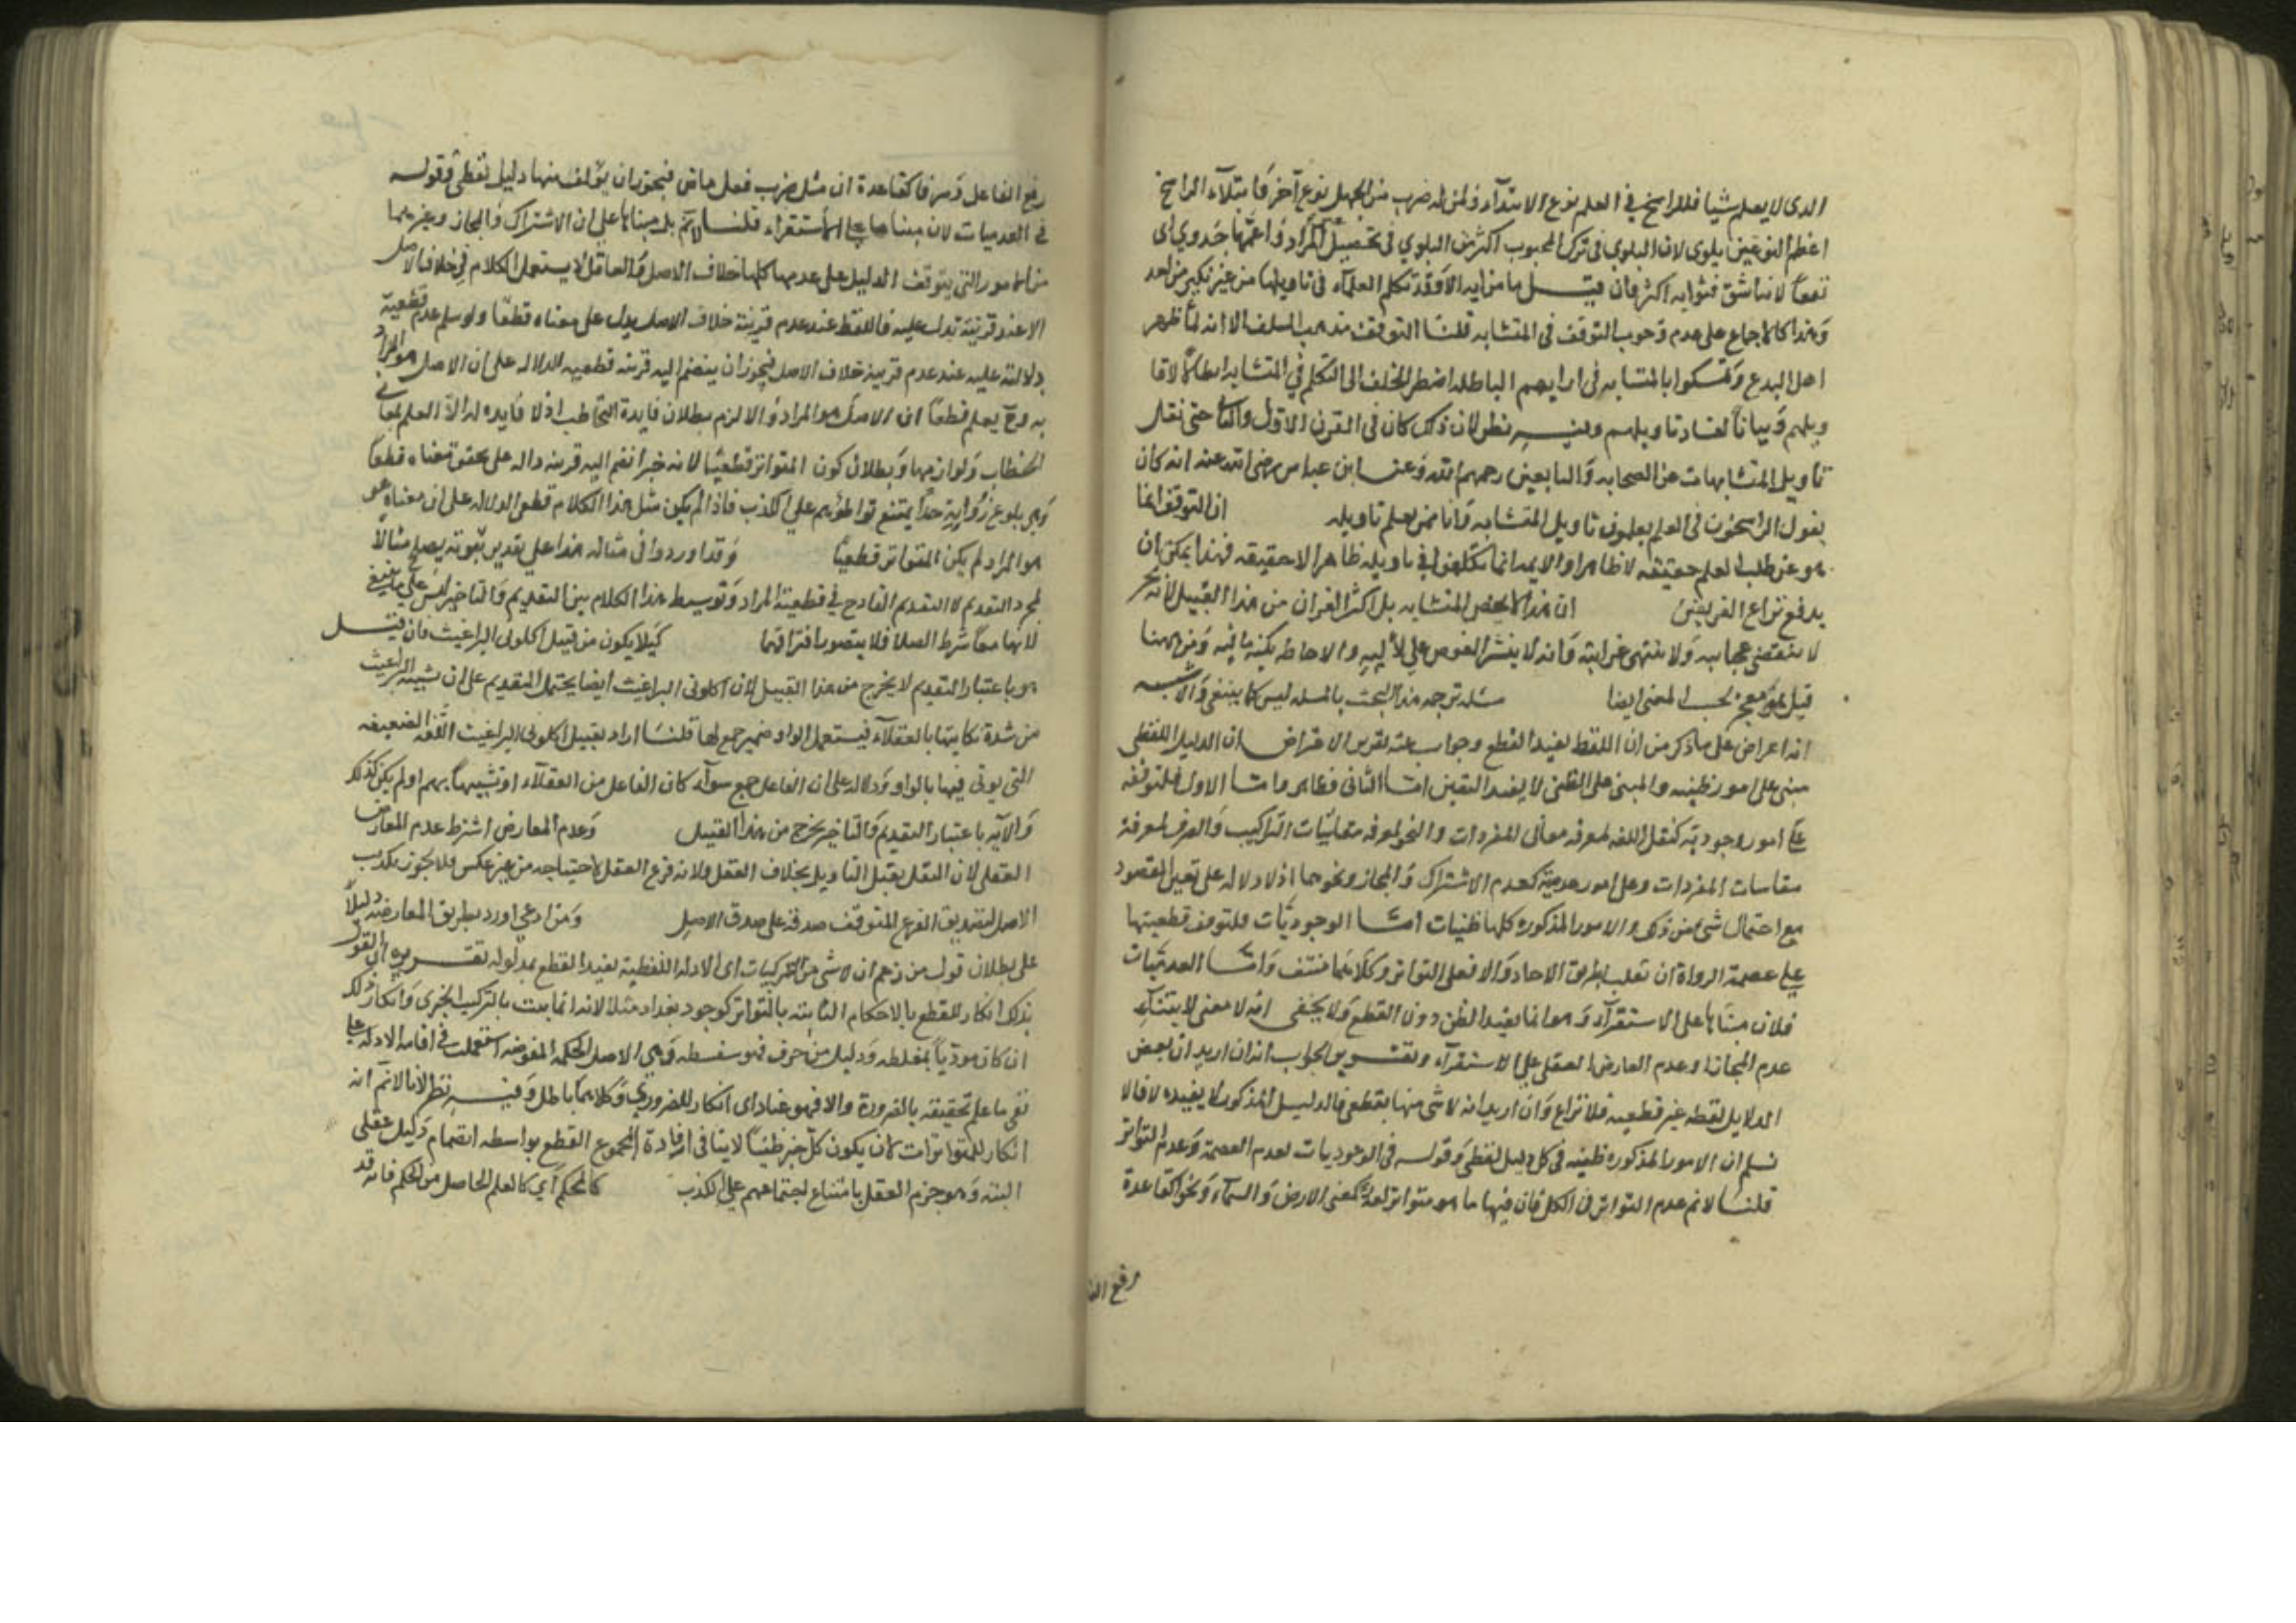 الذى لا يعلم شيا فللراسخ فى العلم نوع الابتدآء ولمن له ضرب من الجهل نوع آخر فابتلآء الراسخ
اعظم النوعين بلوى لان البلوى فى ترك المحبوب اكثر من البلوى فى تحصيل المراد واعمها جدوى اى
نفعا لانه اشق فثوابه اكثر فان قيل ما من اية الا وقد تكلم العلمآء فى تاويلها من غير نكير من احد
وهذا كالاجماع على عدم وجوب التوقف فى المتشابه قلنا التوقف مذهب السلف الا انه لما ظهر
اهل البدع وتمسكوا بالمتشابه فى ارايهم الباطله اضطر الخلف الى التكلم فى المتشابه ابطالا لاقا
ويلهم وبيانا لفساد تاويلهم وفيه نظر لان ذلك كان فى القرن الاول والثانى حتى نقل
تاويل المتشابهات عن الصحابه والتابعين رحمهم الله وعن ابن عباس رضى الله عنه انه كان
يقول الراسخون فى العلم يعلمون تاويل المتشابه وانا ممن يعلم تاويله ان التوقف انما
هو عن طلب العلم حقيقه لا ظاهرا والايمه انما تكلموا فى تاويله ظاهرا لا حقيقه فهذا يمكن ان
يدفع نزاع الفريقين ان هذا لا يخص المتشابه بل اكثر القران من هذا القبيل لانه بحر
لا تنقضى عجايبه ولا تنتهى غرايبه وانه لا يفتر الغوص على لأليه والاحاطه بكنه ما فيه ومن ههنا
قيل هو معجز بحسب المعنى ايضا مسئله ترجمه هذا البحث بالمسله ليس كما ينبغى والاشبه
انه اعراض على ما ذكر من ان اللفظ يفيد القطع وجواب عنه تقرير الاعتراض ان الدليل اللفظى
مبنى على امور ظنيه والمبنى على الظنى لا يفيد اليقين اما الثانى فظاهر واما الاول فلتوقفه
على امور وجودية كنقل اللغه لمعرفه معانى المفردات والنحو لمعرفه متعلقات التراكيب والصرف لمعرفة
مقاسات المفردات وعلى امور عدمية كعدم الاشتراك والمجاز ونحوهما اذ لا دلاله على تعين المقصود
مع احتمال شئ من ذلك والامور المذكوره كلها ظنيات اما الوجوديات فلتوقف قطعيتها
على عصمة الرواة ان نقلت بطريق الاحاد والا فعلى التواتر وكلاهما منتف واما العدميات
فلان مبناها على الاستقرآء وهو انما يفيد الظن دون القطع ولا يخفى انه لا معنى لابتنآء
عدم المجاز وعدم المعارض العقلى على الاستقرآء وتقرير الجواب انه ان اريد ان بعض
الدلايل لفظيه غير قطعيه فلا نزاع وان اريد انه لا شى منها بقطعى فالدليل المذكور لا يفيده لانا لا
نسلم ان الامور المذكوره ظنيه فى كل دليل لفظى وقوله فى الوجوديات لعدم العصمة وعدم التواتر
قلنا لا نم عدم التواتر فى الكل فان فيها ما هو متواتر لغة كمعنى الارض والسمآء ونحوا كقاعدة
رفع الفا
رفع الفاعل وصرفا كقاعدة ان مثل ضرب فعل ماض فيجوز ان يؤلف منها دليل لفظى وقوله
فى العدميات لان مبناها على الاستقراء قلنا لا نم بل مبناها على ان الاشتراك والمجاز وغيرهما
من الامور التى يتوقف الدليل على عدمها كلها خلاف الاصل والعاقل لا يستعمل الكلام فى خلاف الاصل
الا عند قرينة تدل عليه فاللفظ عند عدم قرينة خلاف الاصل يدل على معناه قطعا ولو سلم عدم قطعية
دلالته عليه عند عدم قرينة خلاف الاصل فيجوز ان ينضم اليه قرينه قطعيه الدلاله على ان الاصل هو المراد
به وح يعلم قطعا ان الاصل هو المراد والا لزم بطلان فايدة التخاطب اذ لا فايده له الا العلم بمعانى
الخطاب ولوازمها وبطلان كون المتواتر قطعيا لانه خبر انضم اليه قرينه داله على تحقق معناه قطعا
وهى بلوغ رواته حدا يمتنع تواطؤهم على الكذب فاذا لم يكن مثل هذا الكلام قطعى الدلاله على ان معناه
هو المراد لم يكن المتواتر قطعيا وقد اوردوا فى مثاله هذا على تقدير ثبوته يصلح مثالا
لمجرد التقديم لا التقديم القادح فى قطعية المراد وتوسيط هذا الكلام بين التقديم والتاخير ليس على ما ينبغى
لانهما معا شرط الصلا فلا يتصور افتراقهما كيلا يكون من قبيل اكلونى البراغيث فان قيل
هو باعتبار التقديم لا يخرج من هذا القبيل لان اكلونى البراغيث ايضا يحتمل التقديم على ان تشبيه البراغيث
من شدة نكايتها بالعقلآء فيستعمل الواو ضمير جمع لها قلنا اراد بقبيل اكلونى البراغيث اللغه الضعيفه
التى يوتى فيها بالواو دلاله على ان الفاعل جمع سوآء كان الفاعل من العقلآء او تشبيها بهم او لم يكن كذلك
والآيه باعتبار التقديم والتاخير يخرج من هذا القبيل وعدم المعارض اشترط عدم المعارض
العقلى لان النقل يقبل التاويل بخلاف العقل ولانه فرع العقل لاحتياجه من غير عكس فلا يجوز تكذيب
الاصل لتصديق الفرع المتوقف صدقه على صدق الاصل ومن ادعى اورد بطريق المعارضه دليلا
على بطلان قول من زعم ان لا شى من التركيبات اى الادله اللفظية يفيد القطع بمدلوله تقريره ان القول
بذلك انكار للقطع بالاحكام الثابته بالتواتر كوجود بغداد مثلا لانه انما يثبت بالتركيب الخبرى وانكار ذلك
ان كان مودّيا بمغلطه ودليل مزخرف فهو سفسطه وهى فى الاصل الحكمه المموهه استعملت فى اقامه الادله على
نفى ما علم تحقيقه بالضرورة والا فهو عناد اى انكار للضرورى وكلاهما باطل وفيه نظر لانا لا نم انه
انكار للمتواترات كان يكون كل خبر ظنيا لا ينافى افادة المجموع القطع بواسطه انضمام دليل عقلى
اليه وهو جزم العقل بامتناع اجتماعهم على الكذب كالمحكم اى كالعلم الحاصل من المحكم فانه قد